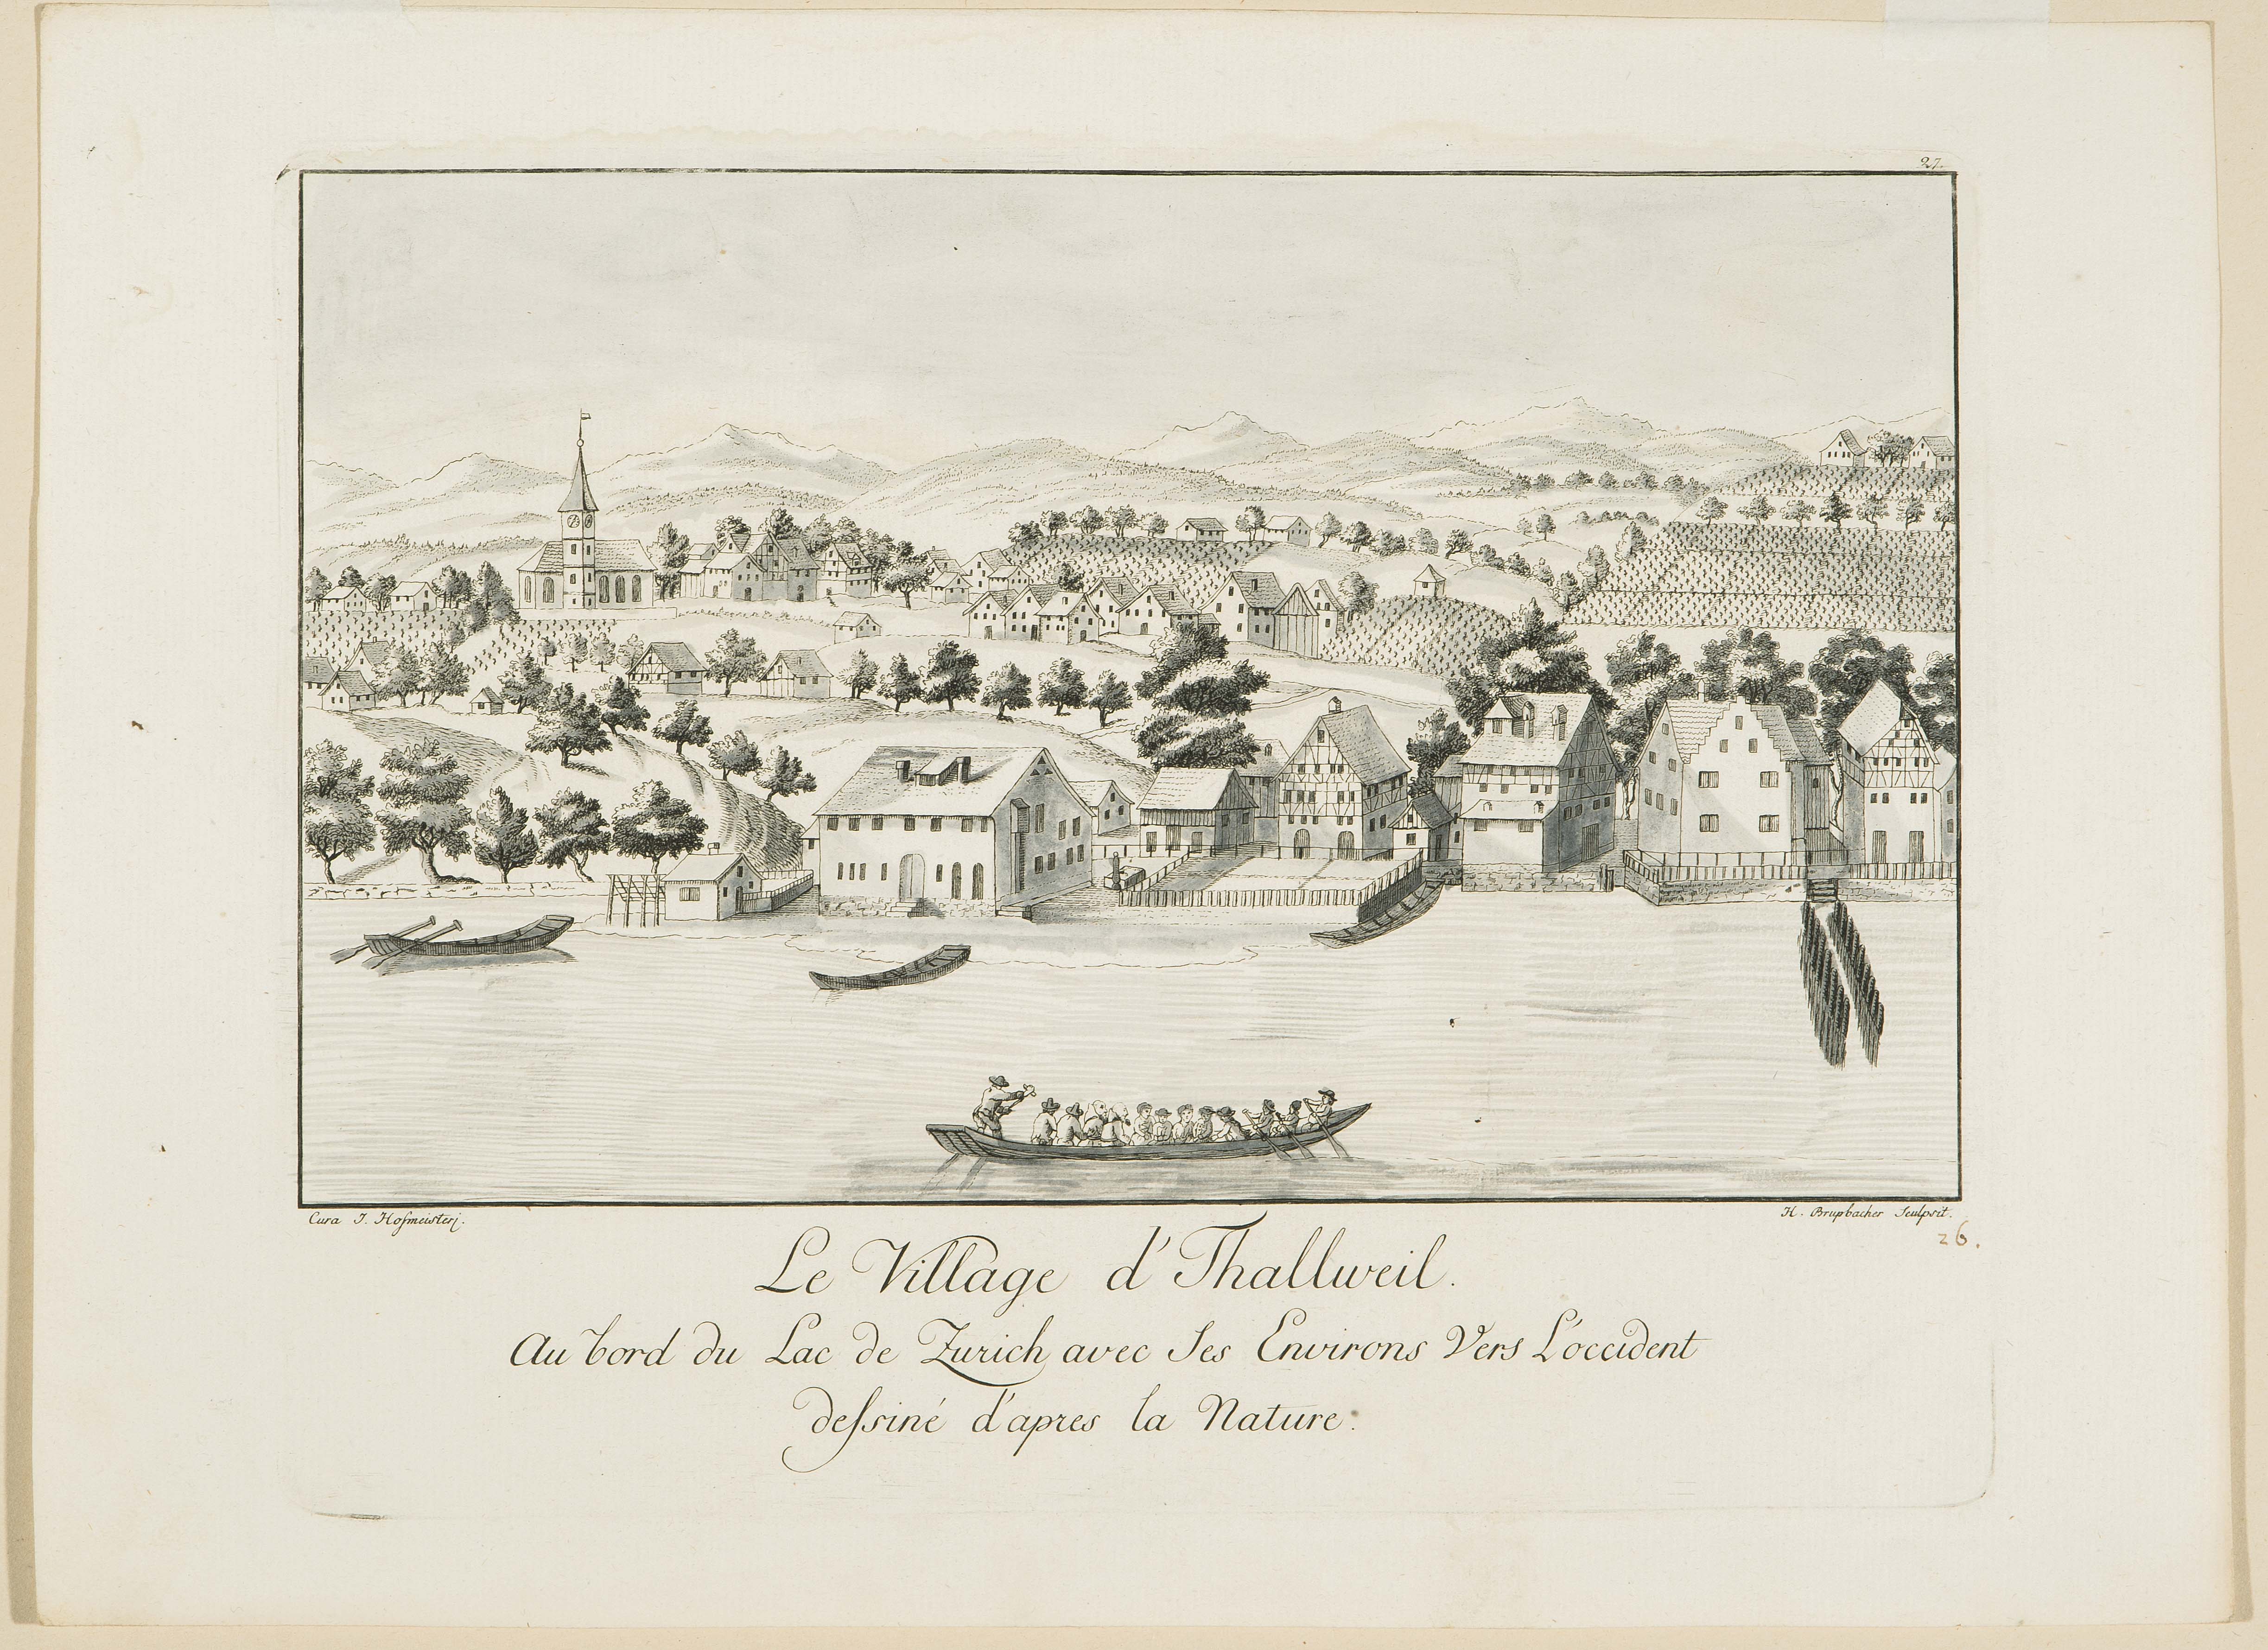 27.
Cura J. Hofmeisterj.
H. Brupbacher Sculpsit.
26.
Le Village d'Thallweil.
Au bord du Lac de Zurich avec Ses Environs Vers L'occident
deſsiné d'apres la Nature.